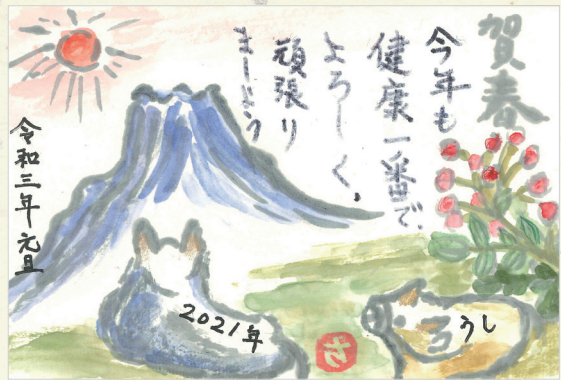 賀春
今年も
健康一番で
よろしく、
頑張り
ましょう
令和三年元旦
2021年
うし